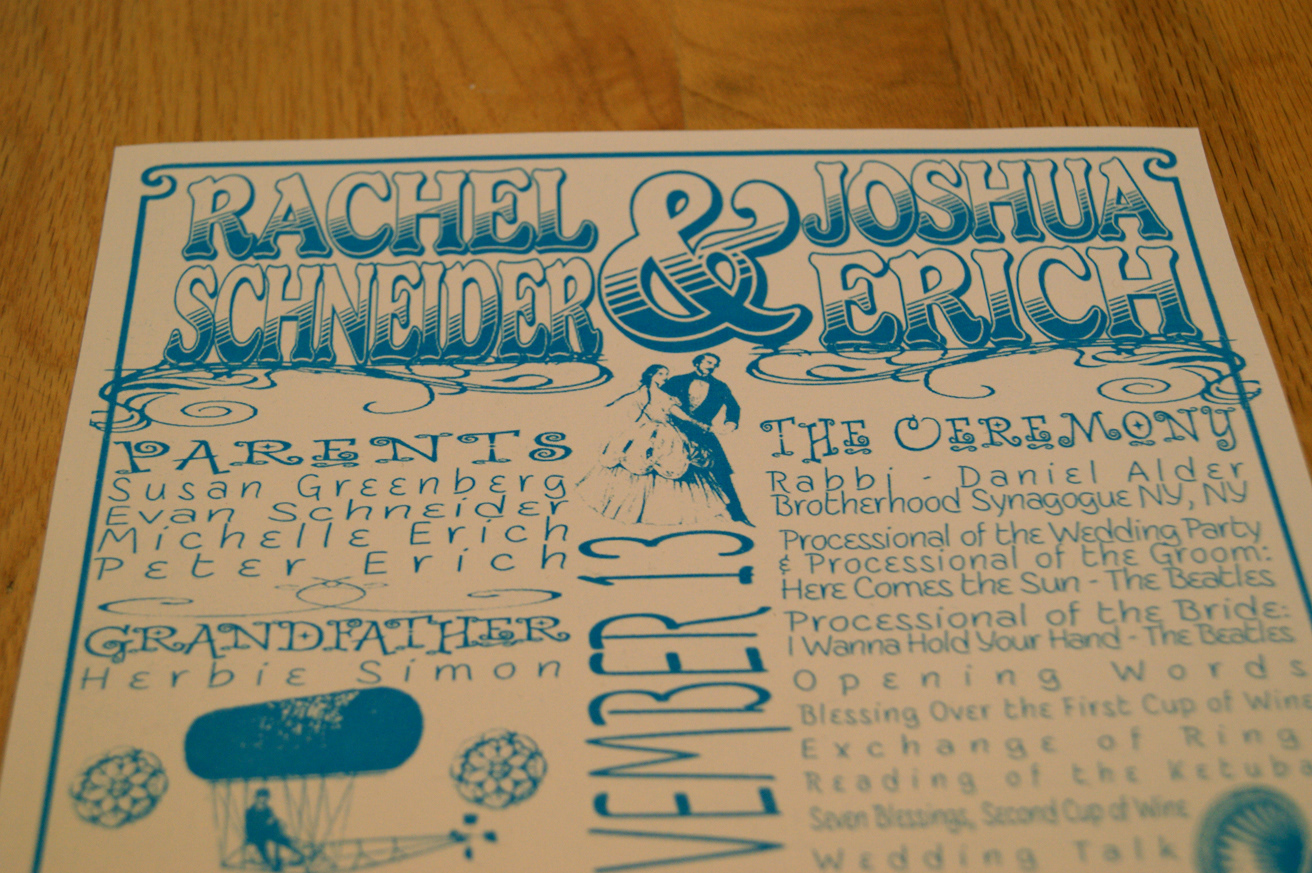 RACHEL
SCHNEIDER
&
JOSHUA
ERICH
PARENTS
Susan Greenberg
Evan Schneider
Michelle Erich
Peter Erich
GRANDFATHER
Herbie Simon
VEMBER 13
THE CEREMONY
Rabbi - Daniel Alder
Brotherhood Synagogue NY, NY
Processional of the Wedding Party
& Processional of the Groom:
Here Comes the Sun - The Beatles
Processional of the Bride:
I Wanna Hold Your Hand - The Beatles
Opening Words
Blessing Over the First Cup of Wine
Exchange of Ring
Reading of the Ketuba
Seven Blessings, Second Cup of Wine
Wedding Talk